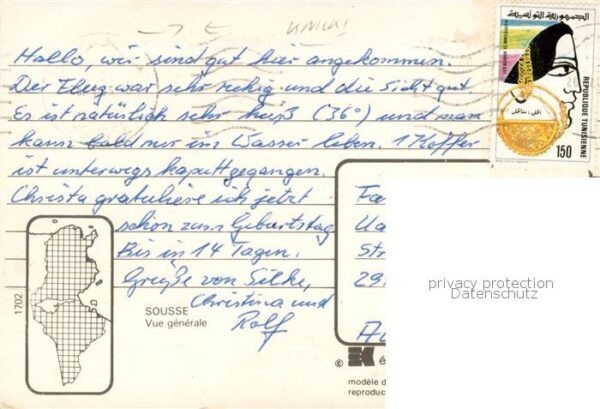 Hallo, wir sind gut hier angekommen.
Der Flug war sehr ruhig und die Sicht gut
Es ist natürlich sehr heiß (36°) und man
kann bald nur im Wasser leben. 1 Koffer
ist unterwegs kaputtgegangen.
Christa gratuliere ich jetzt
schon zum Geburtstag
Bis in 14 Tagen.
Grüße von Silke,
Christina und
Rolf
1702
SOUSSE
Vue générale
الجمهورية التونسية
REPUBLIQUE TUNISIENNE
150
Fa
Ua
Str
29
privacy protection
Datenschutz
© é
modèle d
reproduc